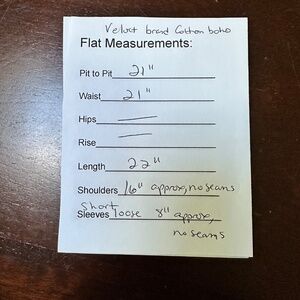 Velvet brand Cotton boho
Flat Measurements:
Pit to Pit 21"
Waist 21"
Hips —
Rise —
Length 22"
Shoulders 16" approx, no seams
Short
Sleeves loose 8" approx,
no seams